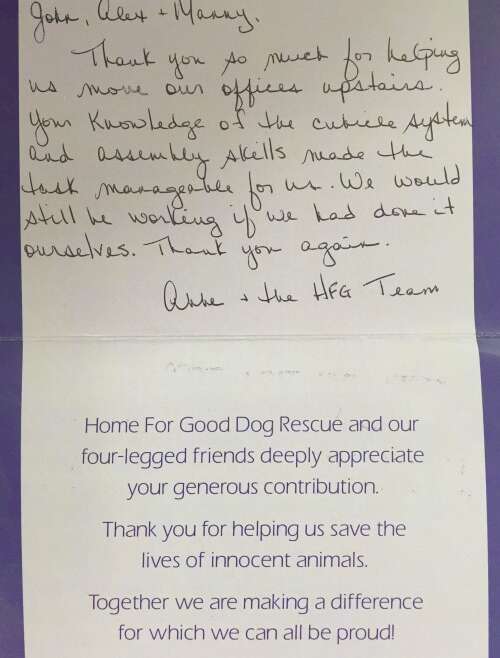 John, Alex + Manny,
Thank you so much for helping
us move our offices upstairs.
Your knowledge of the cubicle system
and assembly skills made the
task manageable for us. We would
still be working if we had done it
ourselves. Thank you again.
Anne + the HFG Team
Home For Good Dog Rescue and our
four-legged friends deeply appreciate
your generous contribution.
Thank you for helping us save the
lives of innocent animals.
Together we are making a difference
for which we can all be proud!